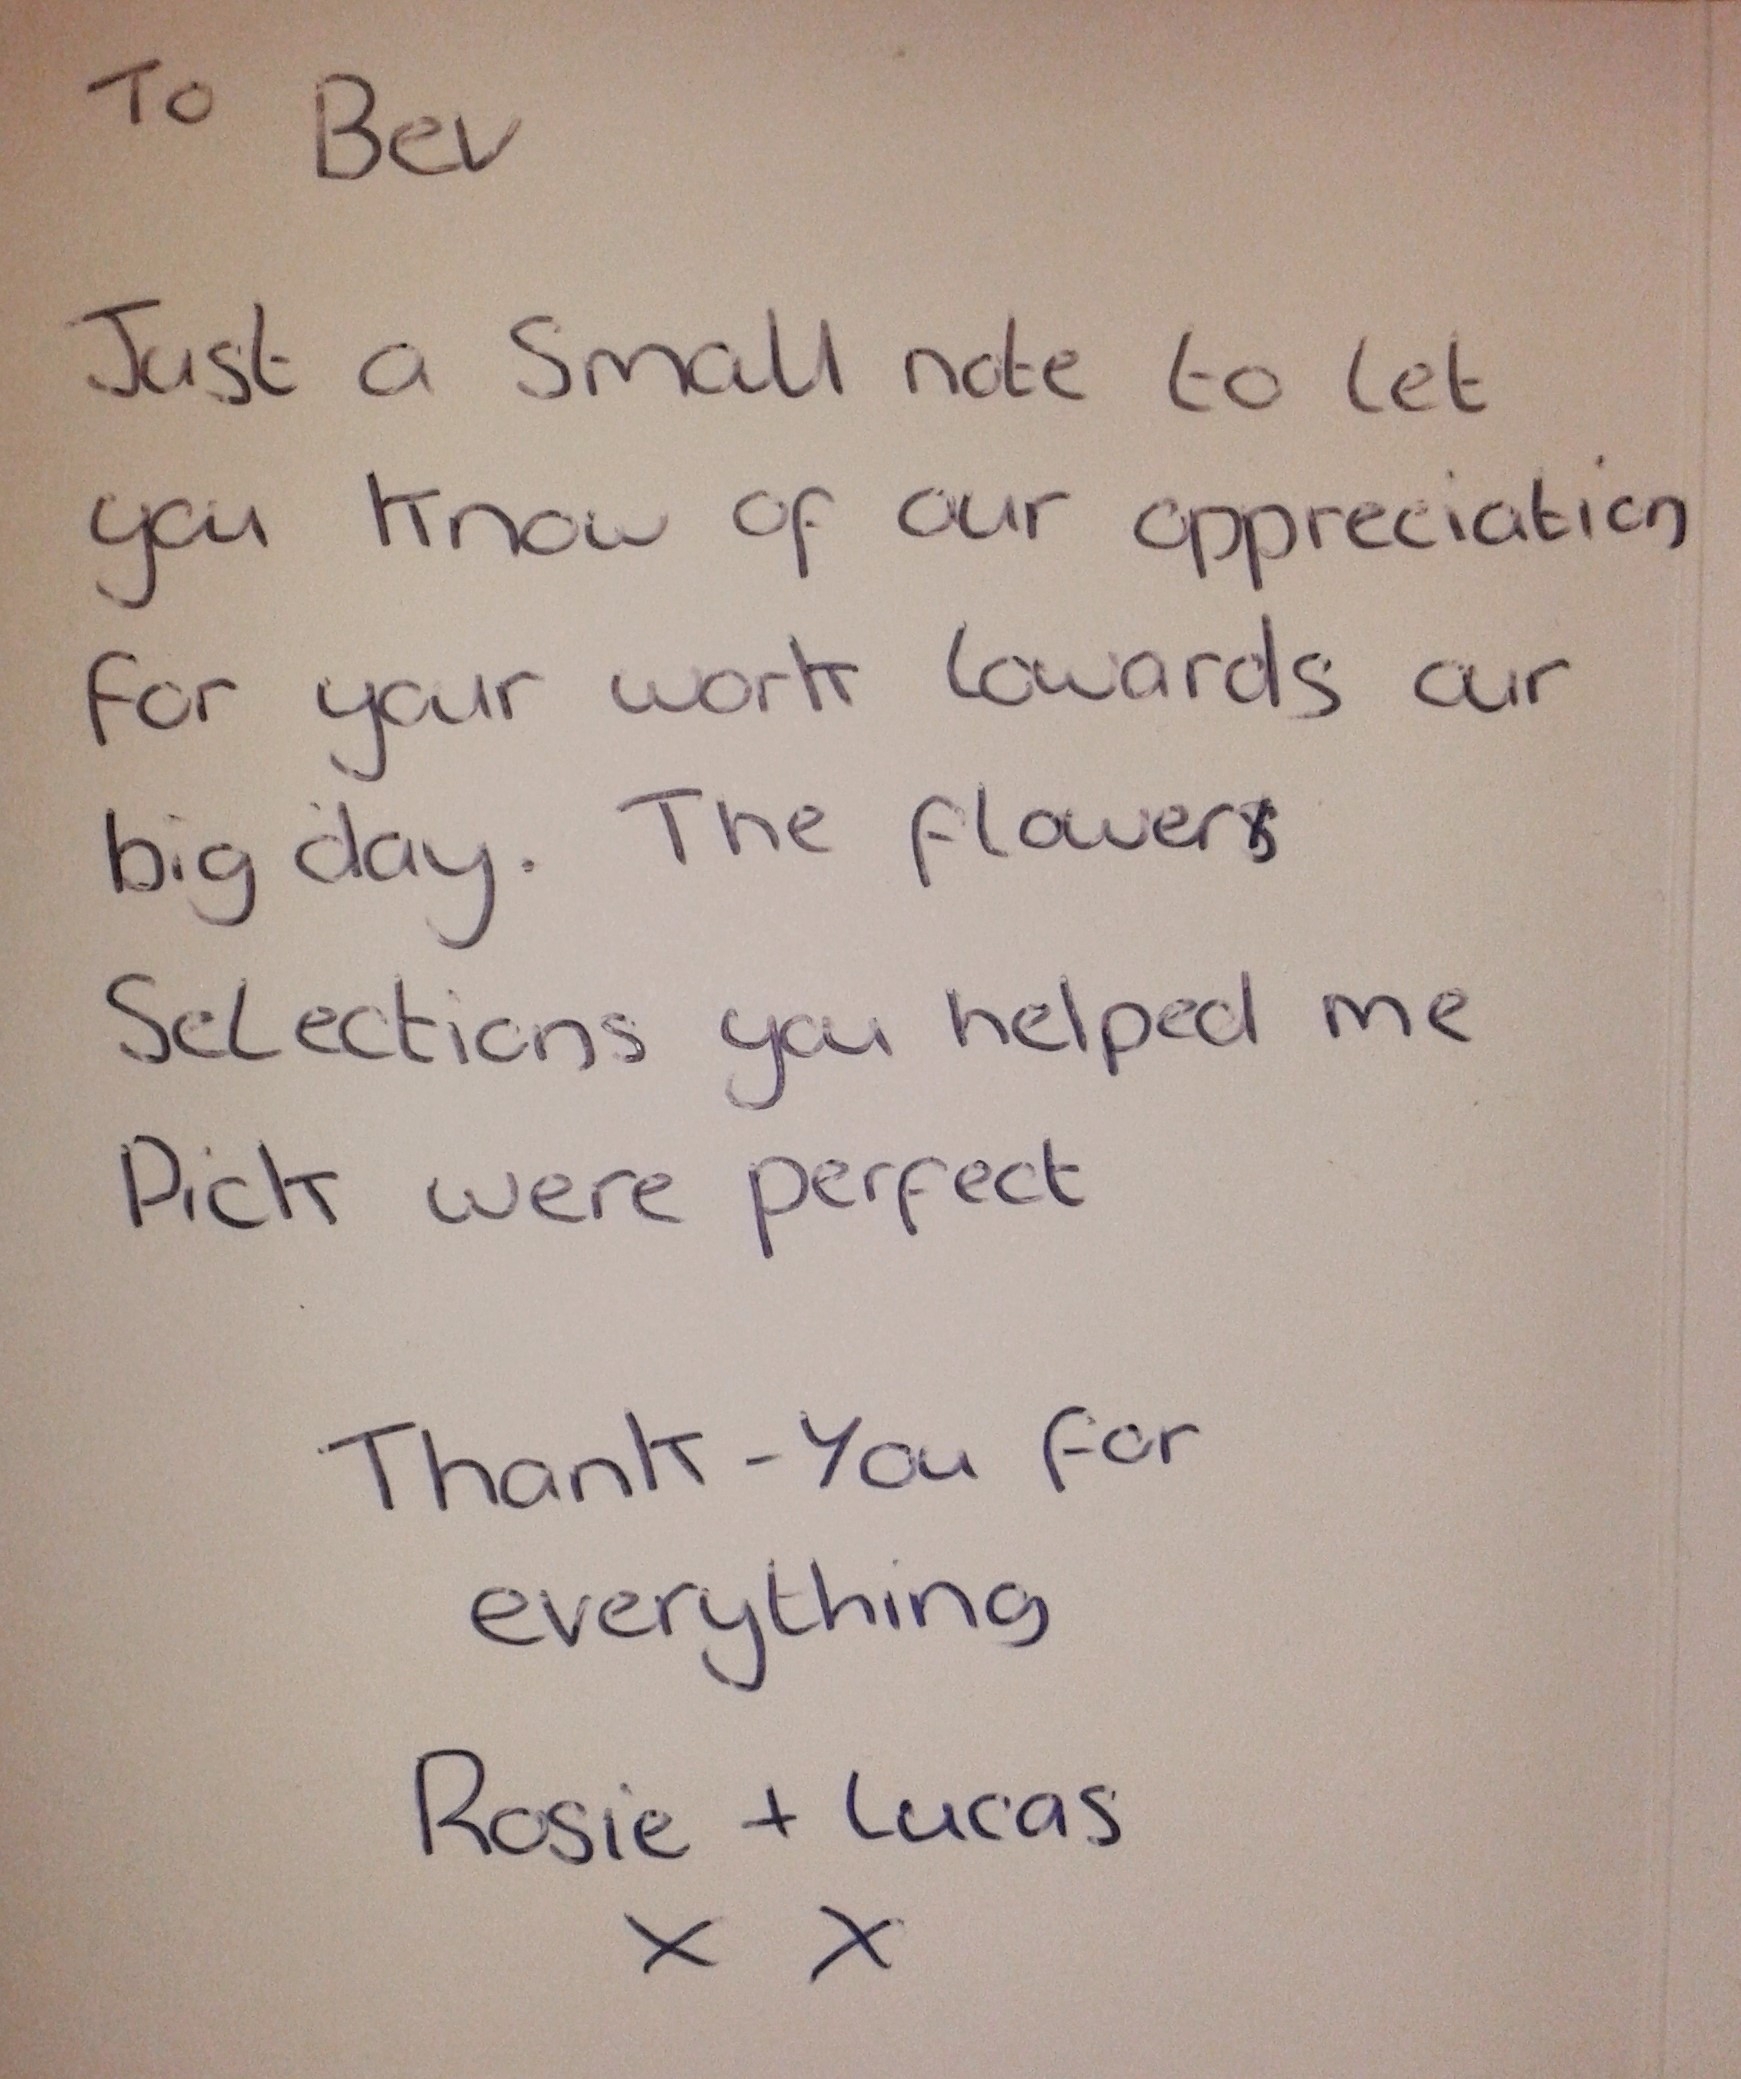 To Bev
Just a Small note to let
you know of our appreciation
for your work towards our
big day. The flowers
Selections you helped me
Pick were perfect
Thank-You for
everything
Rosie + Lucas
x x